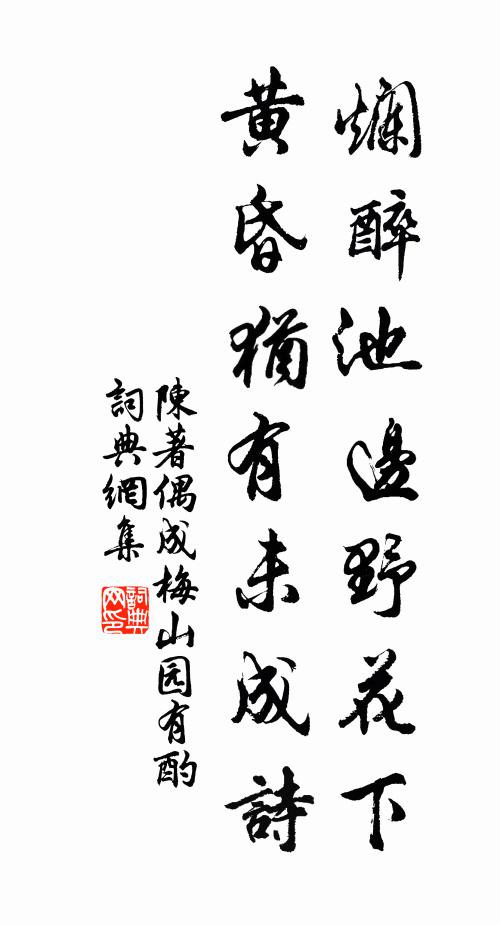 爛醉池邊野花下
黃昏猶有未成詩
陳著偶成梅山园有酌
詞典網集
詞典網印